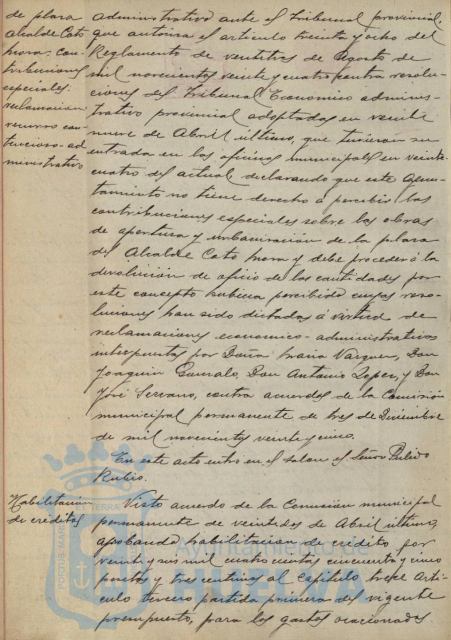 de plaza
Alcalde Coto
mora: Con-
tribuciones
especiales:
reclamacion
recurso con-
tencioso-ad
ministrativo
administrativo ante el Tribunal provincial,
que autoriza el articulo treinta y ocho del
Reglamento de veintitres de Agosto de
mil novecientos veinte y cuatro contra resolu-
ciones del Tribunal Economico adminis-
trativo provincial adoptadas en veinti
nueve de Abril último, que tuvieron su
entrada en las oficinas municipales en veinti-
cuatro del actual declarando que este Ayun-
tamiento no tiene derecho a percibir las
contribuciones especiales sobre las obras
de apertura y urbanizacion de la plaza
del Alcalde Coto mora y debe proceder á la
devolución de oficio de las cantidades por
este concepto hubiera percibido cuyas reso-
luciones han sido dictadas á virtud de
reclamaciones economico-administrativas
interpuestas por Doña Maria Vazquez, Don
Joaquin Don Antonio Lopez, y Don
José Serrano, contra acuerdos de la Comisión
municipal permanente de tres de Diciembre
de mil novecientos veinte y cinco.
En este acto entró en el salon el Señor Pulido
Rubio.
Habilitación
de créditos
Visto acuerdo de la Comisión municipal
permanente de veintidos de Abril último,
aprobando habilitacion de crédito por
veinte y seis mil cuatrocientas cincuenta y cinco
pesetas y tres centimos al Capitulo trece Arti-
culo tercero partida primera del vigente
presupuesto, para los gastos ocasionados
Ayuntamiento de